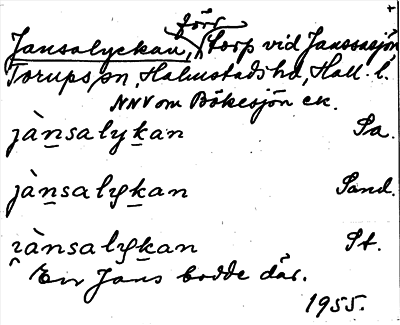 förs.
Jansalyckan, torp vid Janssasjön
Torups sn, Halmstads hd, Hall. l.
NNV om Bökesjön ek.
jànsalykan Sa.
jànsalykan Sand.
jànsalykan St.
En Jans bodde där.
1955.